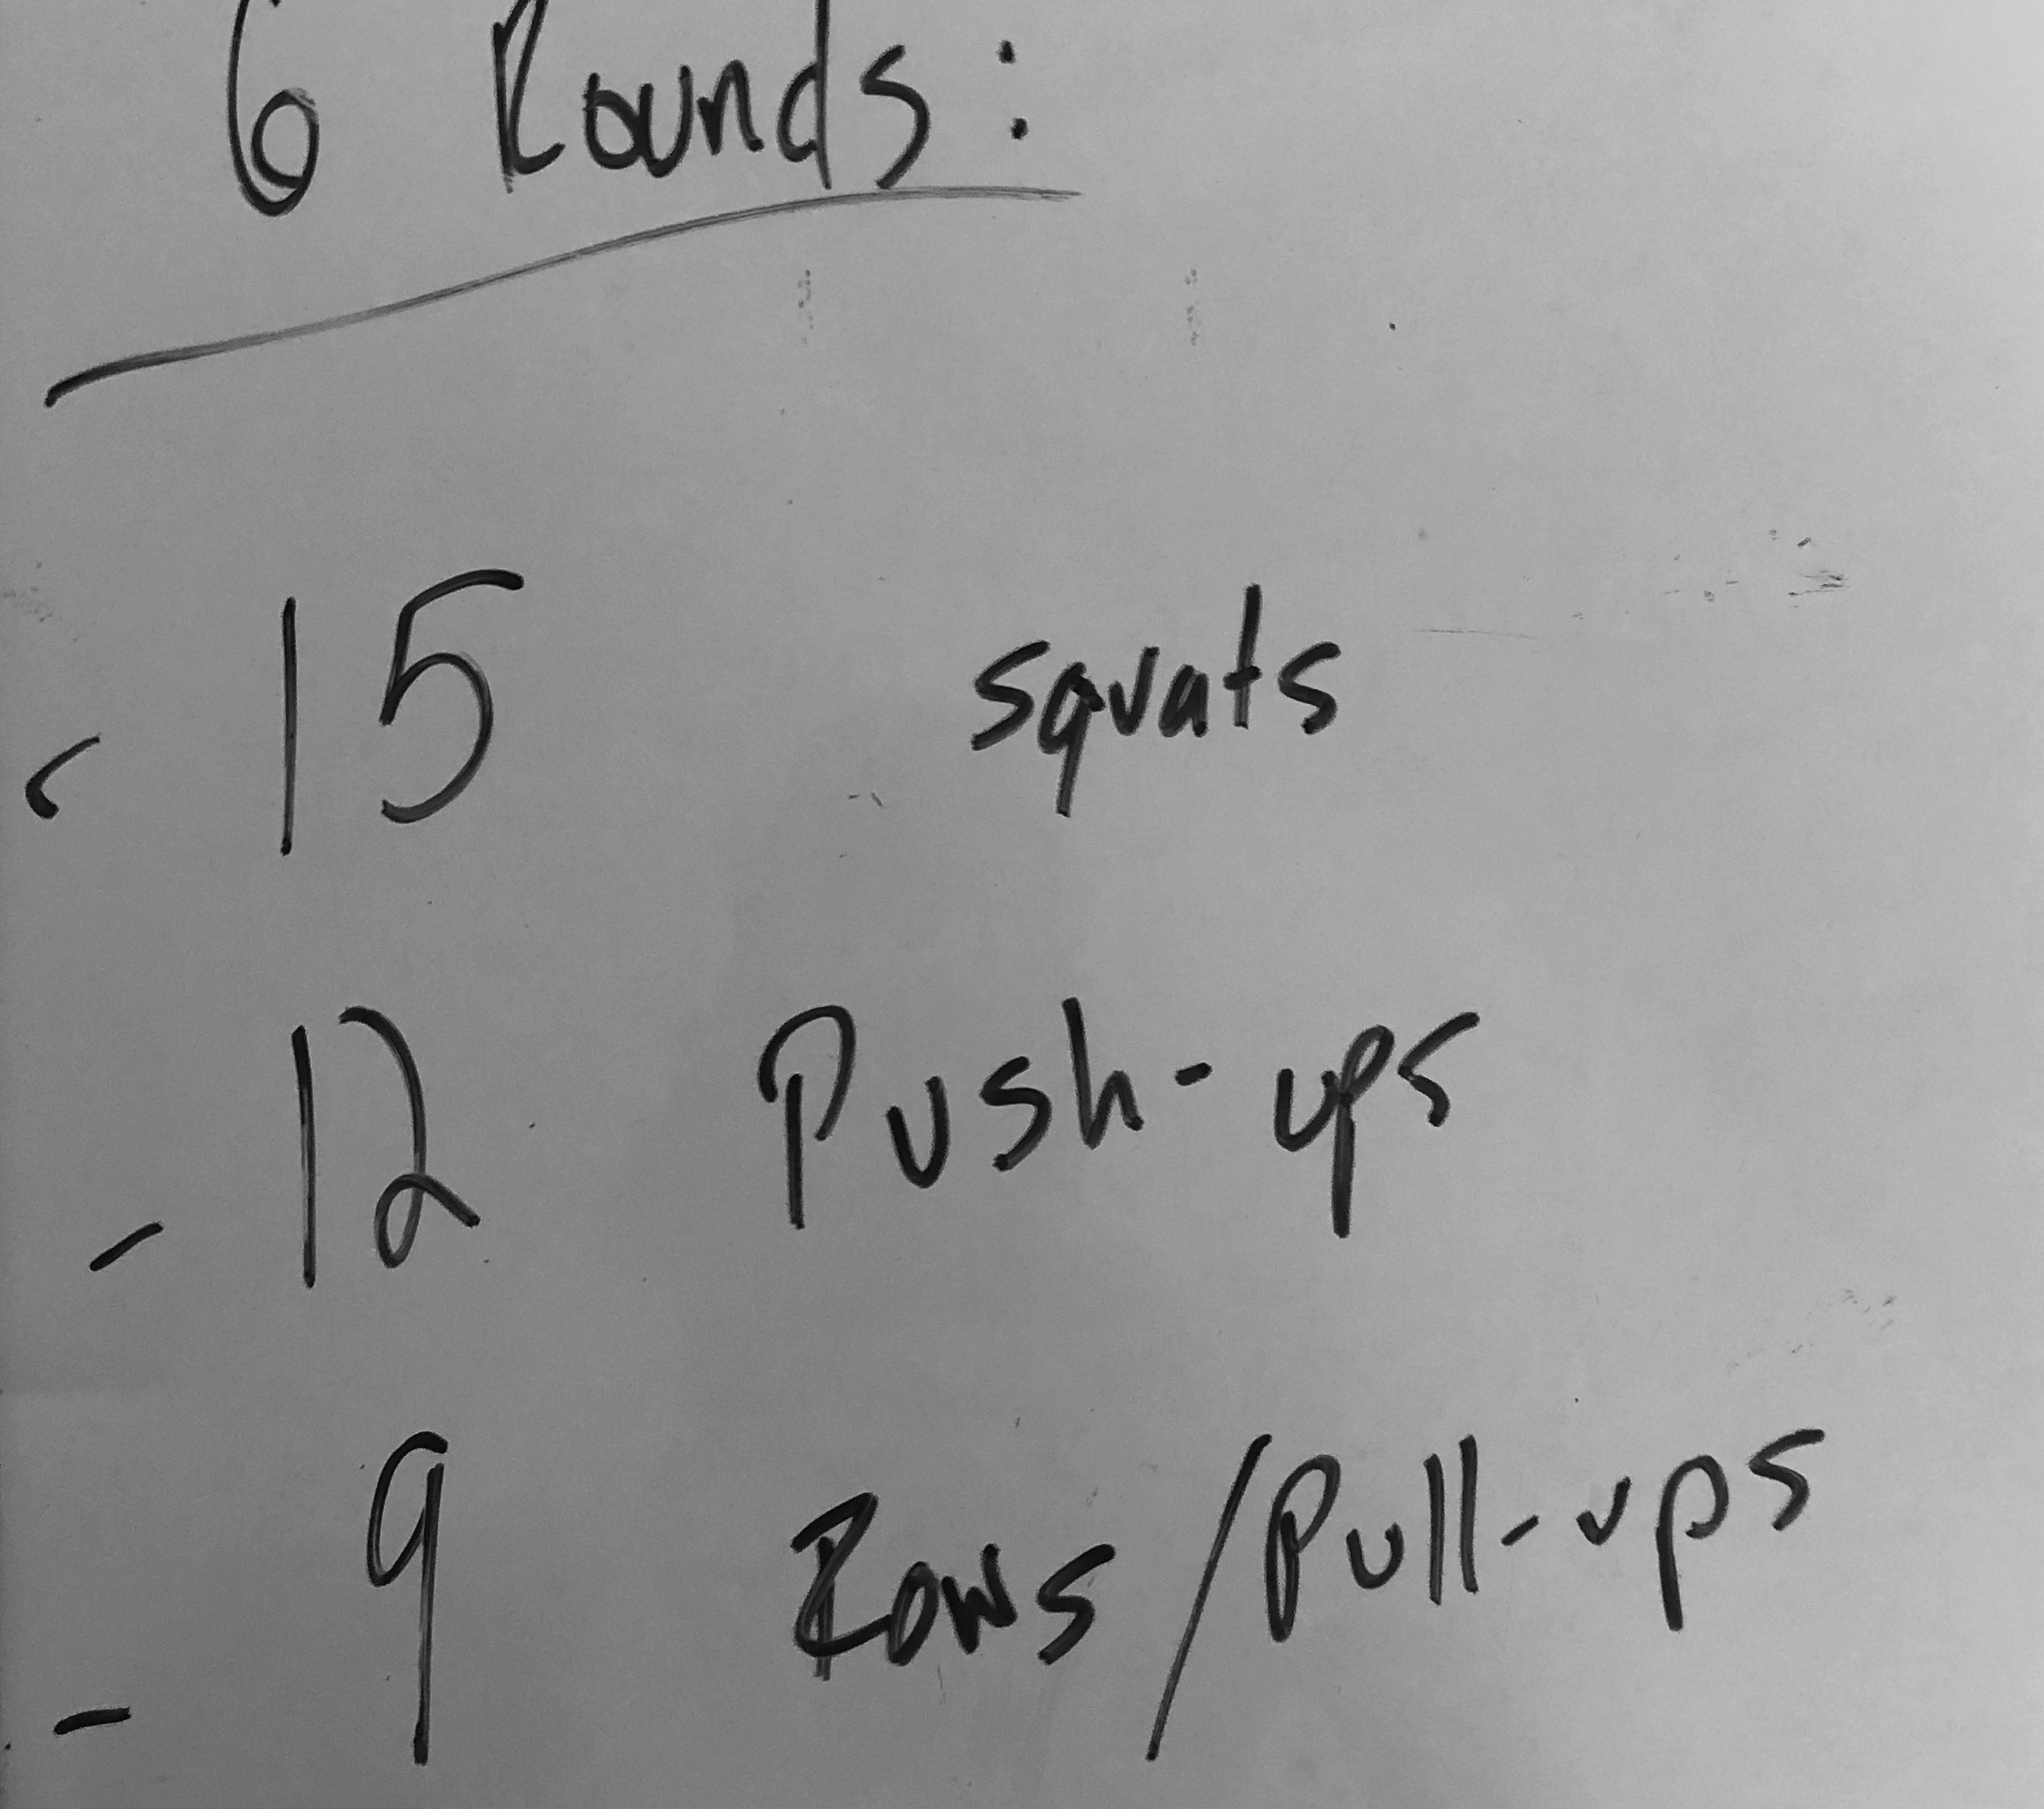 6 Rounds:
- 15 squats
- 12 Push-ups
- 9 Rows/Pull-ups